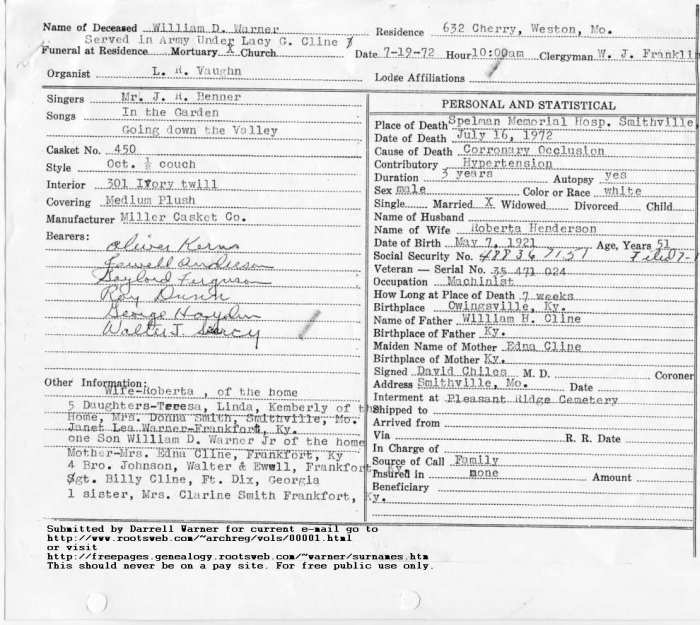 Name of Deceased William D. Warner Residence 632 Cherry, Weston, Mo.
Served in Army Under Lacy G. Cline
Funeral at Residence Mortuary X Church Date 7-19-72 Hour 10:00am Clergyman W. J. Franklin
Organist L. R. Vaughn Lodge Affiliations
Singers Mr. J. R. Benner
Songs In the Garden
Going down the Valley
Casket No. 450
Style Oct. ½ couch
Interior 301 Ivory twill
Covering Medium Plush
Manufacturer Miller Casket Co.
Bearers:
Oliver Korns
Jewell Anderson
Gaylord Ferguson
Roy Dunn
George Hayden
Walter J. Searcy
Other Information:
Wife-Roberta , of the home
5 Daughters-Teresa, Linda, Kemberly of the
Home, Mrs. Donna Smith, Smithville, Mo.
Janet Lea Warner-Frankfort, Ky.
one Son William D. Warner Jr of the home
Mother-Mrs. Edna Cline, Frankfort, Ky
4 Bro. Johnson, Walter & Ewell, Frankfort, Ky.
Sgt. Billy Cline, Ft. Dix, Georgia
1 sister, Mrs. Clarine Smith Frankfort, Ky.
PERSONAL AND STATISTICAL
Place of Death Spelman Memorial Hosp. Smithville,
Date of Death July 16, 1972
Cause of Death Corronary Occlusion
Contributory Hypertension
Duration 3 years Autopsy yes
Sex male Color or Race white
Single Married X Widowed Divorced Child
Name of Husband
Name of Wife Roberta Henderson
Date of Birth May 7, 1921 Age, Years 51
Social Security No. 488367151 Filed 7-1
Veteran — Serial No. 35 471 024
Occupation Machinist
How Long at Place of Death 7 weeks
Birthplace Owingsville, Ky.
Name of Father William H. Cline
Birthplace of Father Ky.
Maiden Name of Mother Edna Cline
Birthplace of Mother Ky.
Signed David Chiles M. D. Coroner
Address Smithville, Mo. Date
Interment at Pleasant Ridge Cemetery
Shipped to
Arrived from
Via R. R. Date
In Charge of
Source of Call Family
Insured in none Amount
Beneficiary
Submitted by Darrell Warner for current e-mail go to
http://www.rootsweb.com/~archreg/vols/00001.html
or visit
http://freepages.genealogy.rootsweb.com/~warner/surnames.htm
This should never be on a pay site. For free public use only.